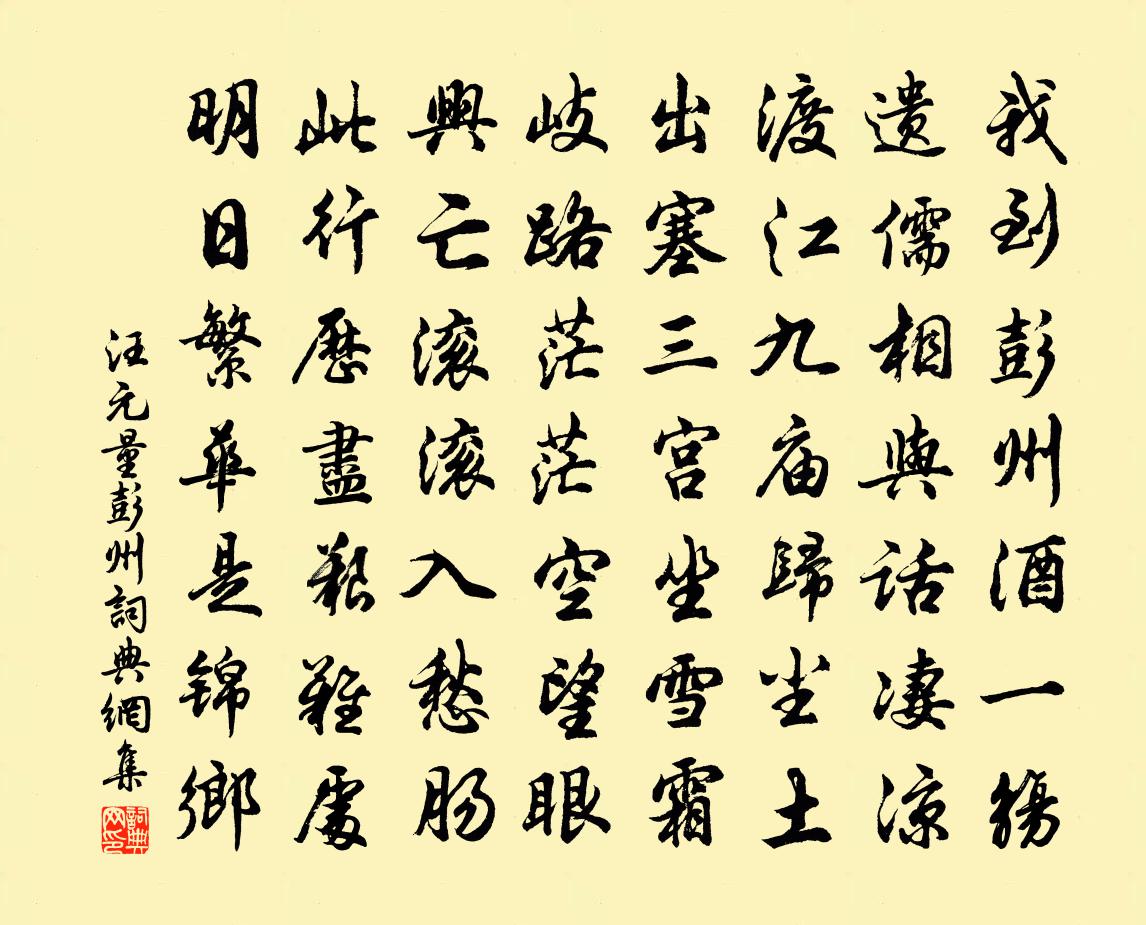 我到彭州酒一觴
遗儒相與話凄涼
渡江九庙歸尘土
出塞三宫坐雪霜
岐路茫茫空望眼
興亡滚滚入愁肠
此行歷盡艱難處
明日繁華是锦鄉
汪元量彭州詞典網集
詞典网印